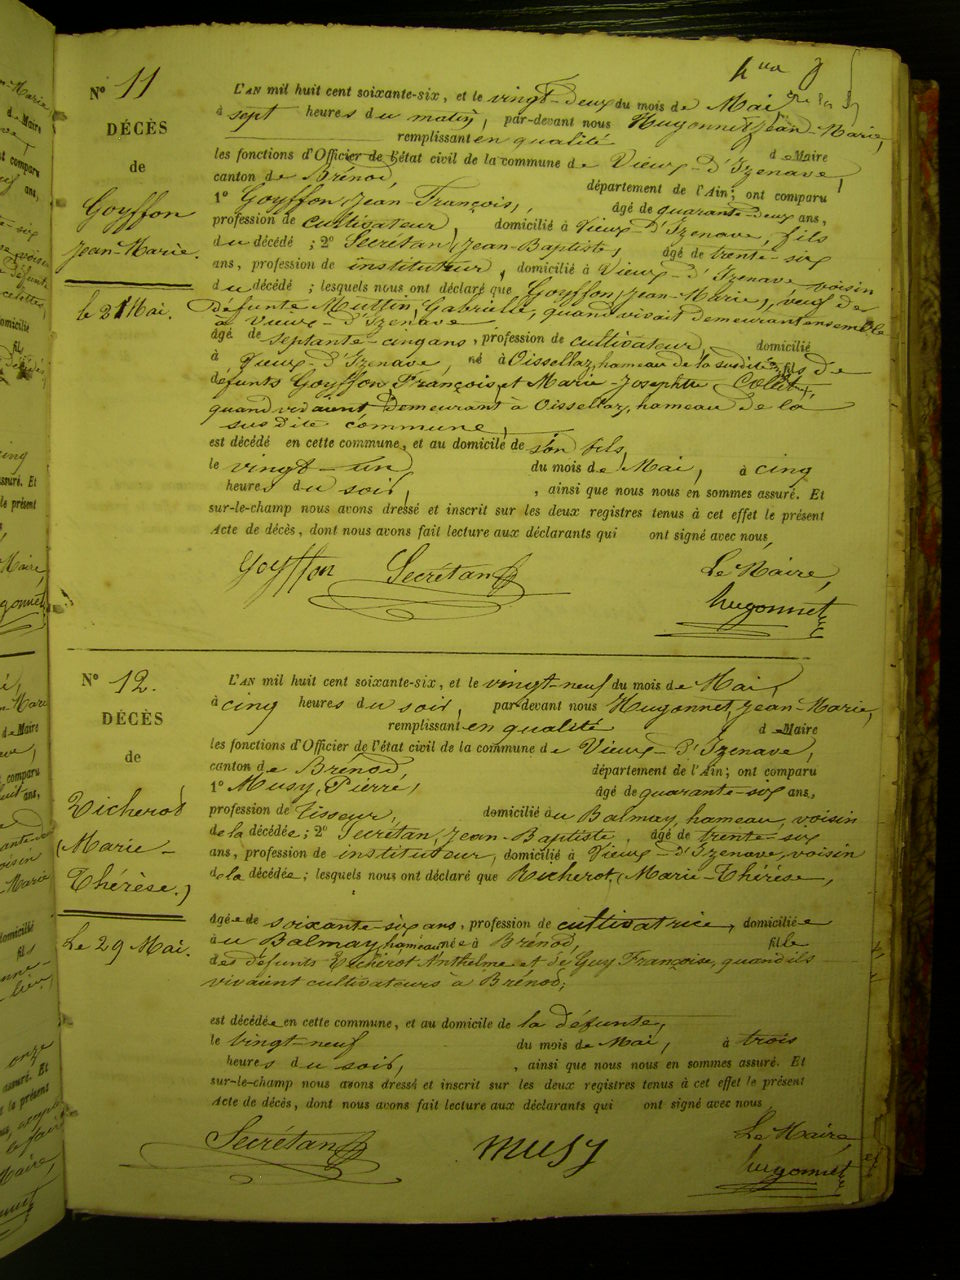 N° 11
DÉCÈS
de
Goyffon
Jean-Marie.
le 21 Mai.
L'AN mil huit cent soixante-six, et le vingt-deux du mois de Mai
à sept heures du matin, par-devant nous Hugonnet, Jean-Marie,
remplissant en qualité de Maire
les fonctions d'Officier de l'état civil de la commune de Vieux-d'Izenave,
canton de Brénod, département de l'Ain; ont comparu
1° Goyffon, Jean-François, âgé de quarante-deux ans,
profession de cultivateur, domicilié à Vieux-d'Izenave, fils
du décédé ; 2° Secrétan, Jean-Baptiste, âgé de trente-six
ans, profession de instituteur, domicilié à Vieux-d'Izenave voisin
du décédé ; lesquels nous ont déclaré que Goyffon, (Jean-Marie), veuf de
défunte Gabrielle, quand vivait demeurant ensemble
à Vieux-d'Izenave
âgé de septante-cinq ans, profession de cultivateur, domicilié
à Vieux d'Izenave, né à Oissellaz, hameau de la susdite fils de
défunts Goyffon, François, et Marie-Josephte Collet,
quand vivaient demeurant à Oissellaz, hameau de la
susdite commune,
est décédé en cette commune, et au domicile de son fils,
le vingt-un du mois de Mai, à cinq
heures du soir, , ainsi que nous nous en sommes assuré. Et
sur-le-champ nous avons dressé et inscrit sur les deux registres tenus à cet effet le présent
Acte de décès, dont nous avons fait lecture aux déclarants qui ont signé avec nous,
Goyffon Secrétan Le Maire,
hugonnet
N° 12.
DÉCÈS
de
Richerot
(Marie-
Thérèse.)
Le 29 Mai.
L'AN mil huit cent soixante-six, et le vingt-neuf du mois de Mai,
à cinq heures du soir, par-devant nous Hugonnet, Jean-Marie,
remplissant en qualité de Maire
les fonctions d'Officier de l'état civil de la commune de Vieux-d'Izenave,
canton de Brénod, département de l'Ain; ont comparu
1° Musy, Pierre, âgé de quarante-six ans,
profession de tisseur, domicilié au Balmay, hameau, voisin
de la décédée; 2° Secrétan, Jean-Baptiste, âgé de trente-six
ans, profession de instituteur, domicilié à Vieux-d'Izenave, voisin
de la décédée; lesquels nous ont déclaré que Richerot, (Marie-Thérèse,
âgée de soixante-six ans, profession de cultivatrice, domiciliée
au Balmay, hameau née à Brénod, fille
des défunts Richerot Anthelme et de Guy Françoise, quand ils
vivaient cultivateurs à Brénod;
est décédée en cette commune, et au domicile de la défunte,
le vingt-neuf du mois de Mai, à trois
heures du soir, , ainsi que nous nous en sommes assuré. Et
sur-le-champ nous avons dressé et inscrit sur les deux registres tenus à cet effet le présent
Acte de décès, dont nous avons fait lecture aux déclarants qui ont signé avec nous
Secrétan musy Le Maire,
hugonnet